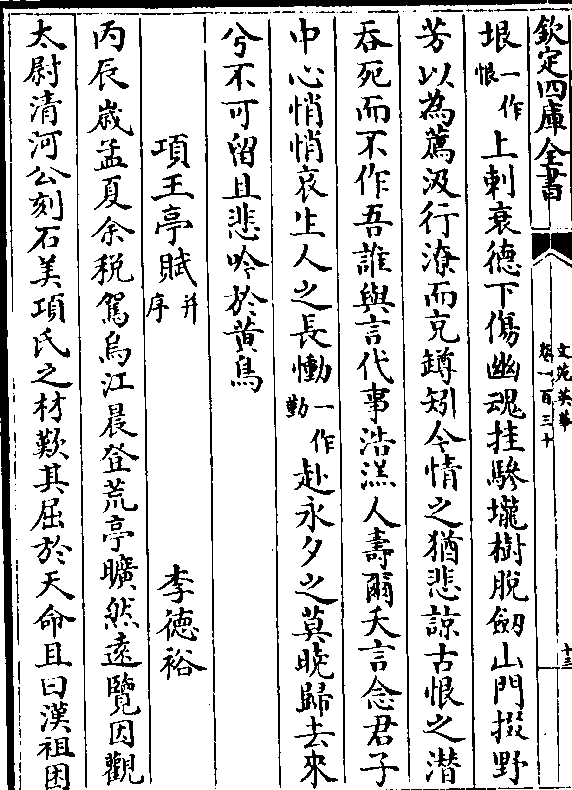 欽定四庫全書
文苑英華
卷一百三十
十三
垠一作恨上刺衰德下傷幽魂挂驂壠樹脱劒山門掇野
芳以為薦汲行潦而充罇矧今情之猶悲諒古恨之潜
吞死而不作吾誰與言代事浩漾人壽爾夭言念君子
中心悄悄哀生人之長慟一作勤赴永夕之莫晩歸去來
兮不可留且悲吟於黄鳥
項王亭賦并序 李德裕
丙辰歲孟夏余税駕烏江晨登荒亭曠然遠覽因觀
太尉清河公刻石美項氏之材歎其屈於天命且曰漢祖困